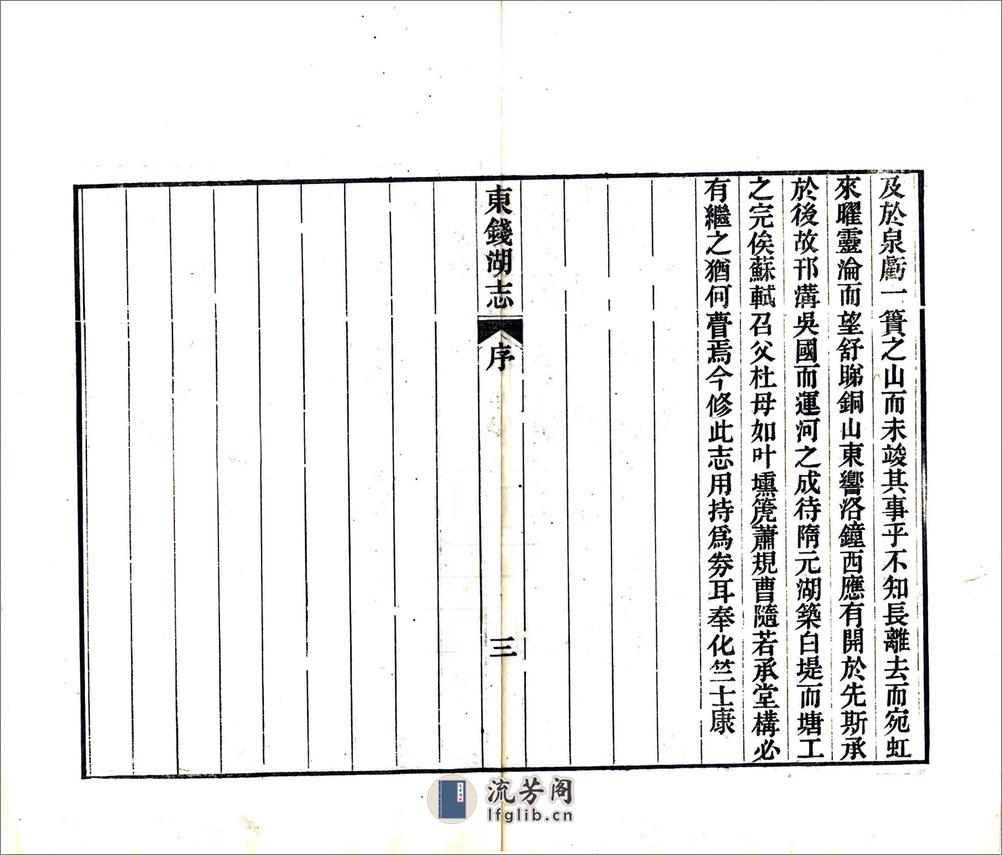 及於泉虧一簣之山而未竣其事乎不知長離去而宛虹
來曜靈淪而望舒睇銅山東響洛鐘西應有開於先斯承
於後故邗溝吳國而運河之成待隋元湖築白堤而塘工
之完俟蘇軾召父杜母如叶壎篪蕭規曹隨若承堂構必
有繼之猶何瞢焉今修此志用持為券耳奉化竺士康
東錢湖志
序
三
流芳阁
lfglib.cn